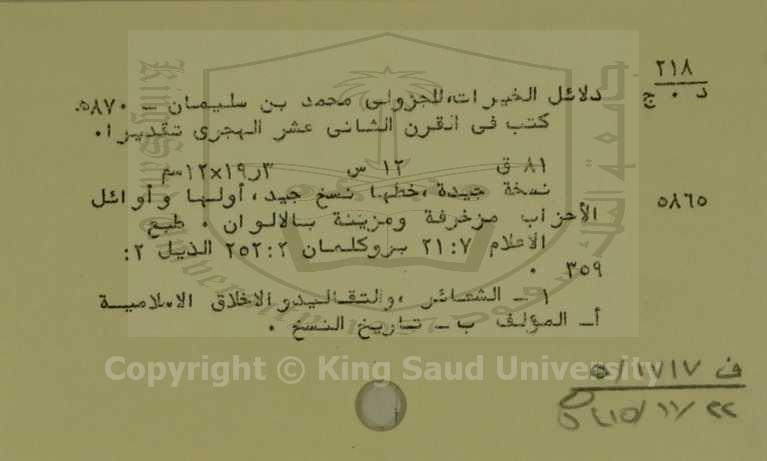 ٢١٨
د ٠ ج
دلائل الخيرات،للجزولى محمد بن سليمان - ٨٧٠ه.
كتب فى القرن الثانى عشر الهجرى تقديرا.
٨١ ق ١٢ س ٣ر١٩×١٢سم
نسخة جيدة ،خطها نسخ جيد، أولها وأوائل
٥٨٦٥
الأحزاب مزخرفة ومزينة بالالوان . طبع
الاعلام ٧:٢١ بروكلمان ٢:٢٥٢ الذيل ٢:
٣٥٩ .
١ - الشعائر ،والتقاليدو الاخلاق الاسلامية
أ- المؤلف ب - تاريخ النسخ .
Copyright © King Saud University
ف ١٧١٧/٥